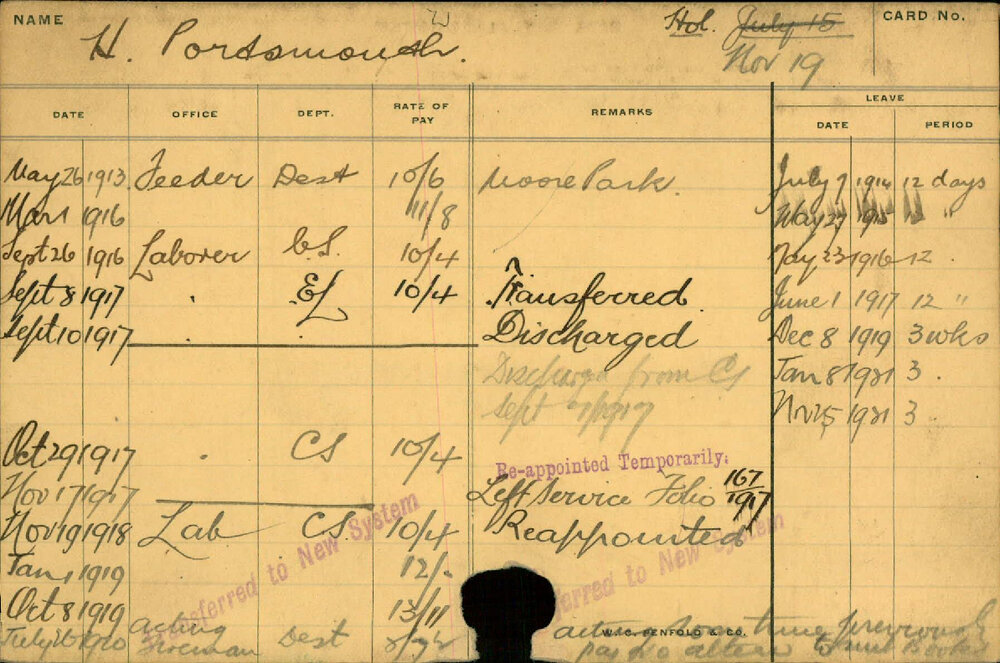 NAME H. Portsmouth. W Hol. July 15 CARD No.
Nov 19
DATE OFFICE DEPT. RATE OF PAY REMARKS LEAVE
DATE PERIOD
May 26 1913 Feeder Dest 10/6 Moore Park. July 7 1914 12 days
Mar 1 1916 11/8 May 27 1915 12 "
Sept 26 1916 Laborer C.S. 10/4 May 23 1916 12 .
Sept 8 1917 . EL 10/4 Transferred June 1 1917 12 "
Sept 10 1917 . Discharged Dec 8 1919 3 wks
Discharge from CS Jan 8 1921 3 .
Sept 1917 Nov 25 1921 3
Oct 29 1917 . CS 10/4 Re-appointed Temporarily.
Nov 17 1917 Left Service Folio 167/1917
Nov 19 1918 Lab CS 10/4 Reappointed
Jan 1 1919 12/-
Oct 8 1919 13/11
July 26 1920 acting Foreman Dest
Transferred to New System
Transferred to New System
W.C. PENFOLD & CO.